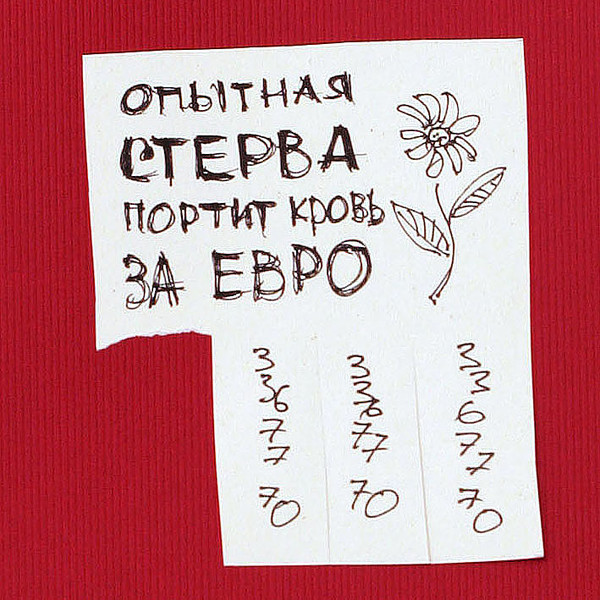 ОПЫТНАЯ
СТЕРВА
ПОРТИТ КРОВЬ
ЗА ЕВРО
3
36
7
7
70
3
36
77
70
33
6
77
70